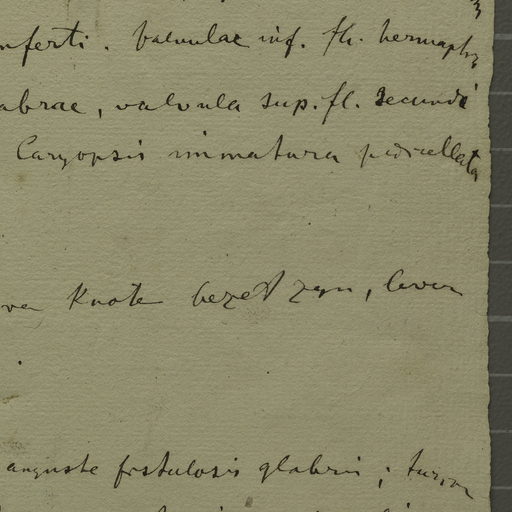 nferti. Valvulae inf. fl. hermaphr
abrae, valvula sup. fl. secundi
Caryopsis immatura pedicellata
ven Knote bezet zyn, boven
anguste fistulosis glabris; turion